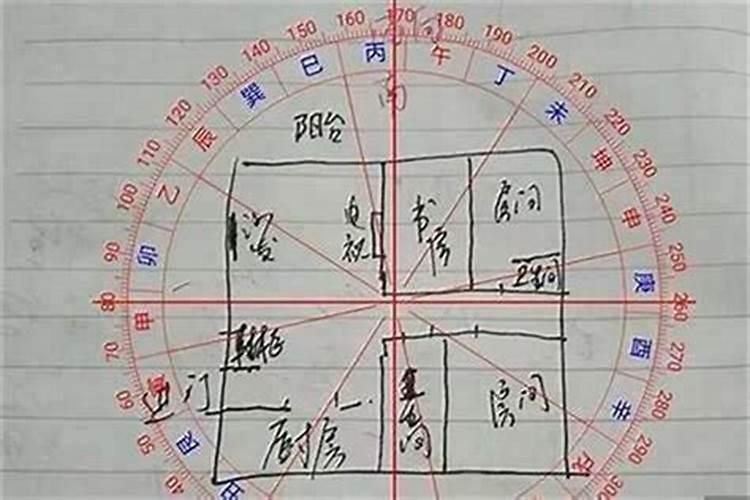 160 170 180
150 190
140 200
130 210
120 220
110 230
100 240
90 250
80 260
70 270
60 280
50 290
40 300
丙 午 丁 未 坤 申 庚 酉 辛 戌
巳 巽 辰 乙 卯 甲 寅 艮 丑
南
阳台
沙发
电视
书房
房间
卫生间
鞋柜
进门
厨房
卫生间
房间